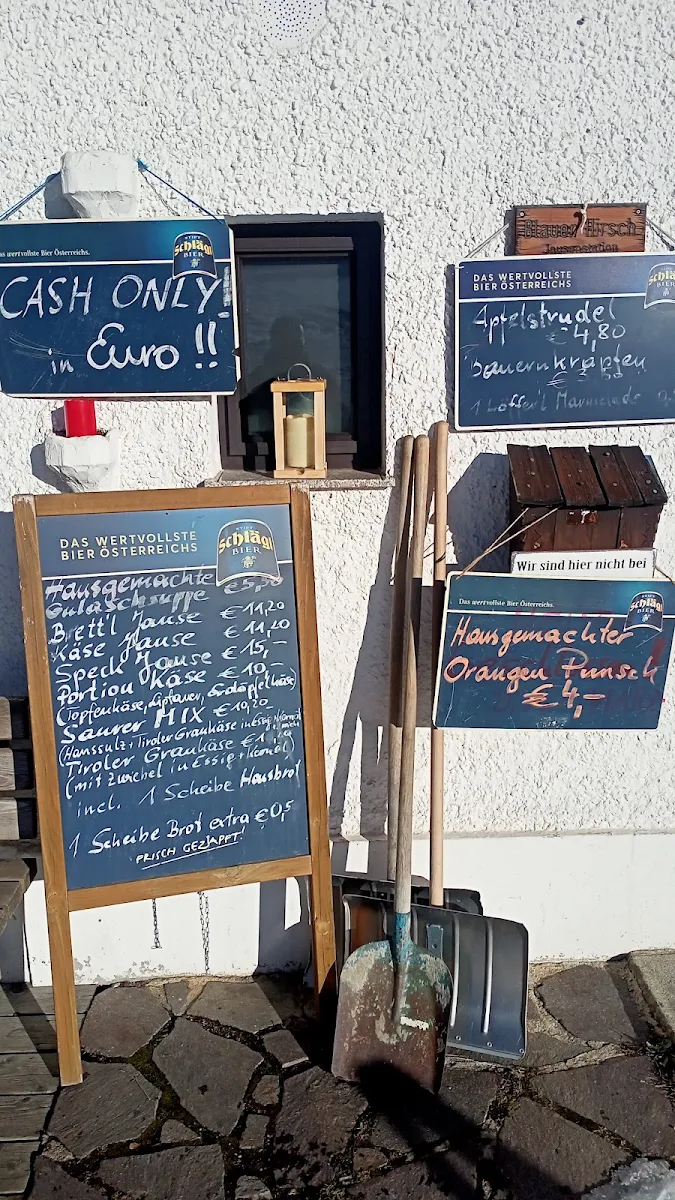 as wertvollste Bier Österreichs.
STIFT
Schlägl
BIER
CASH ONLY!
in Euro !!
Blauer Hirsch
Jausenstation
DAS WERTVOLLSTE
BIER ÖSTERREICHS
Schlägl
BIER
Apfelstrudel
€ 4,80
Bauernkrapfen
1 Löfferl Marmelade
Wir sind hier nicht bei
Das wertvollste Bier Österreichs.
Schlägl
BIER
Hausgemachter
Orangen Punsch
€ 4,-
DAS WERTVOLLSTE
BIER ÖSTERREICHS
STIFT
Schlägl
BIER
Hausgemachte
Gulaschsuppe €5,50
Brett'l Jause €11,20
Käse Jause €11,20
Speck Jause €15,-
Portion Käse €10,-
(Topfenkäse, Liptauer, Erdäpfelkäse)
Saurer MIX €10,20
(Haussulz + Tiroler Graukäse in Essig
Tiroler Graukäse
(mit Zwiebel in Essig + Kernöl)
incl. 1 Scheibe Hausbrot
1 Scheibe Brot extra €0,5
FRISCH GEZAPFT!